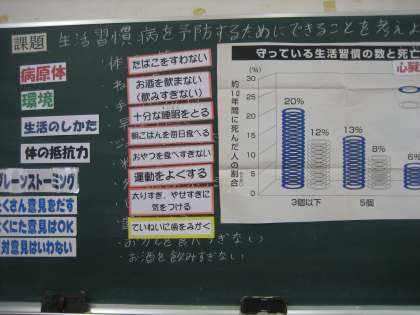 課題
生活習慣病を予防するためにできることを考えよ
病原体
環境
生活のしかた
体の抵抗力
ブレーンストーミング
たくさん意見をだす
意見はOK
対意見はいわない
たばこをすわない
お酒を飲まない
(飲みすぎない)
十分な睡眠をとる
朝ごはんを毎日食べる
おやつを食べすぎない
運動をよくする
太りすぎ、やせすぎに
気をつける
ていねいに歯をみがく
・お酒を飲みすぎない
守っている生活習慣の数と死亡
心臓
(%)
30
25
20
15
10
5
0
約10年間に死んだ人の割合
20%
12%
13%
8%
6%
3個以下
5個